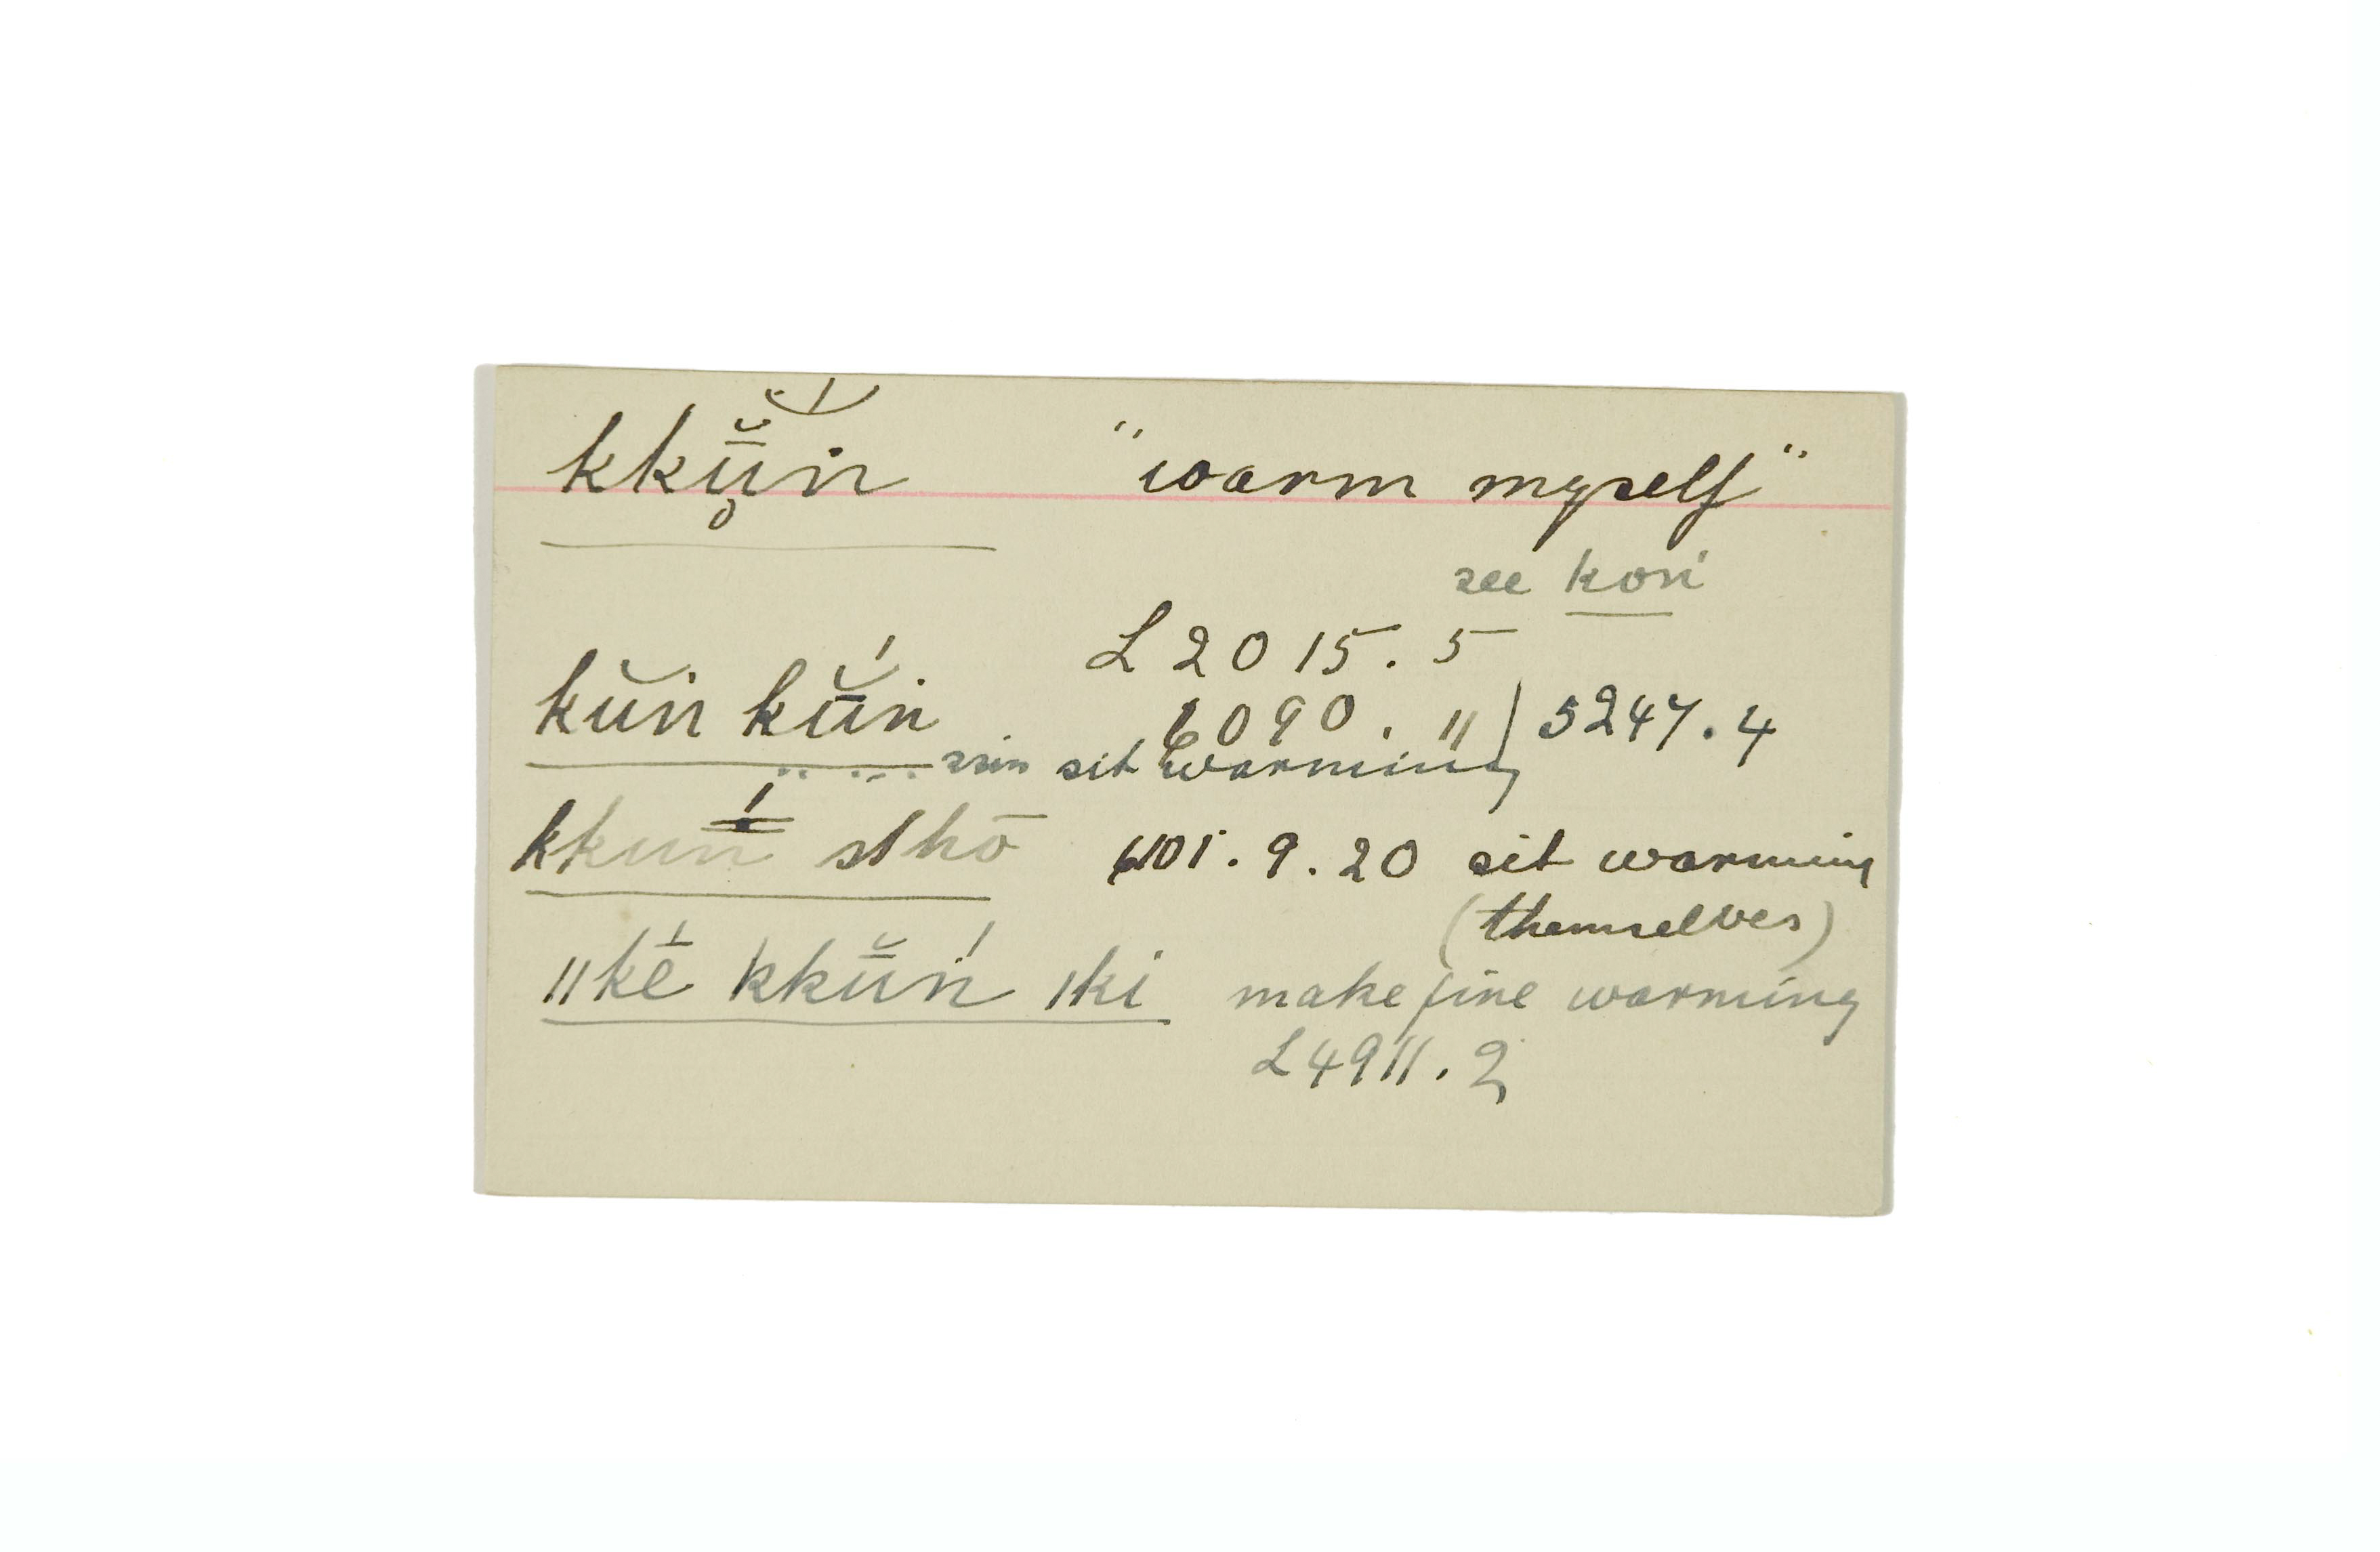 kkṵ̄̆ṅ "warm myself"
see koṅ
L 2015. 5
kŭṅ kū̆́ṅ 6090. " ) 5247. 4
ssin sit warming
kkuṅ̄́ sʇhō 401. 9. 20 sit warming
(themselves)
ǁkḗ kkū̆ṅ́ ǀki make fine warming
L 4911. 2